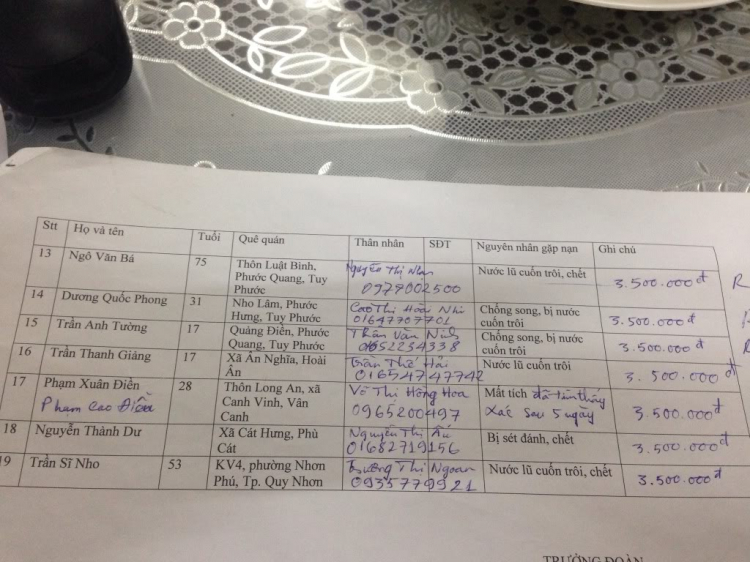 Stt Họ và tên Tuổi Quê quán Thân nhân SĐT Nguyên nhân gặp nạn Ghi chú
13 Ngô Văn Bá 75 Thôn Luật Bình, Phước Quang, Tuy Phước Nguyễn Thị Nhạn 0979002500 Nước lũ cuốn trôi, chết 3.500.000đ
14 Dương Quốc Phong 31 Nho Lâm, Phước Hưng, Tuy Phước Cao Thị Hòa Nhi 01647707701 Chống song, bị nước cuốn trôi 3.500.000đ
15 Trần Anh Tường 17 Quảng Điền, Phước Quang, Tuy Phước Văn 3.500.000đ Chống song, bị nước cuốn trôi
16 Trần Thanh Giảng 17 Xã Ân Nghĩa, Hoài Ân Trần Thế Hải 01654747742 Nước lũ cuốn trôi 3.500.000đ
17 Phạm Xuân Điền Phạm Cao Điền 28 Thôn Long An, xã Canh Vinh, Vân Canh Võ Thị Hồng Hoa 0965200497 Mất tích đã tìm thấy xác sau 5 ngày 3.500.000đ
18 Nguyễn Thành Dư Xã Cát Hưng, Phù Cát Nguyễn Thị Ấu 01682719156 Bị sét đánh, chết 3.500.000đ
19 Trần Sĩ Nho 53 KV4, phường Nhơn Phú, Tp. Quy Nhơn Trương Thị Ngoan 0935779921 Nước lũ cuốn trôi, chết 3.500.000đ
TRƯỞNG ĐOÀN